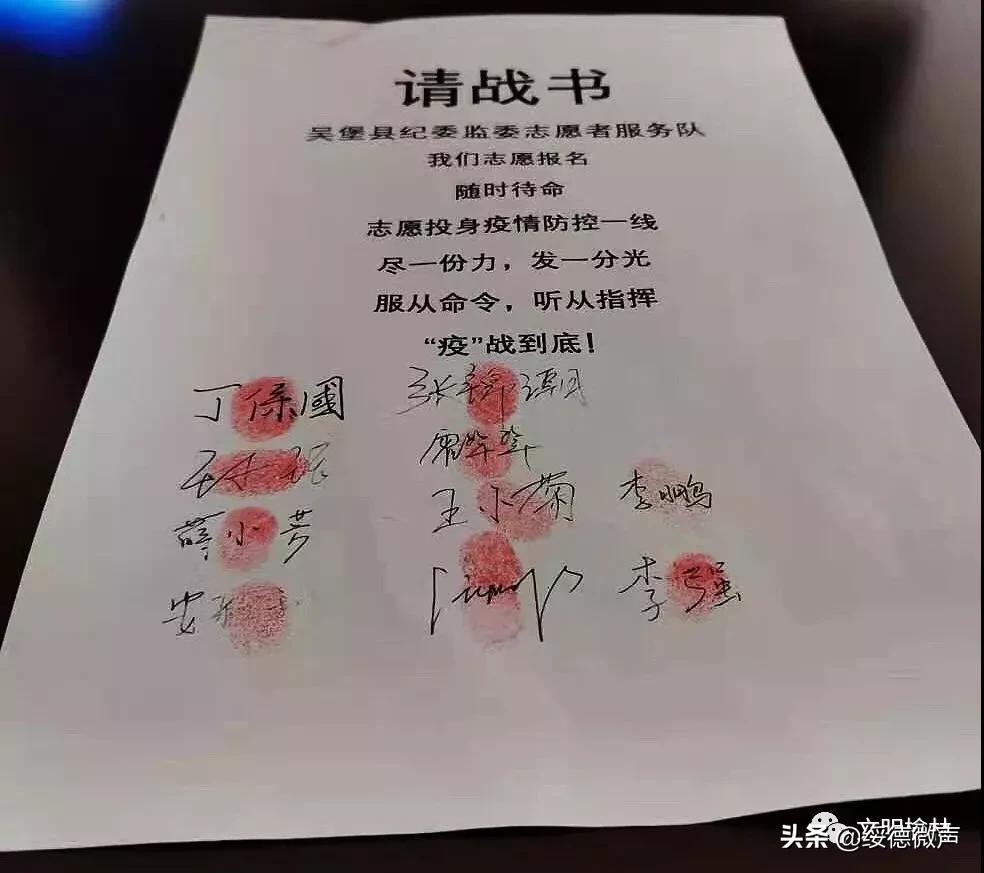 请战书
吴堡县纪委监委志愿者服务队
我们志愿报名
随时待命
志愿投身疫情防控一线
尽一份力，发一分光
服从命令，听从指挥
“疫”战到底！
丁保國
王小菊 李鹏
薛小芳
李强
文明榆林
头条@绥德微声